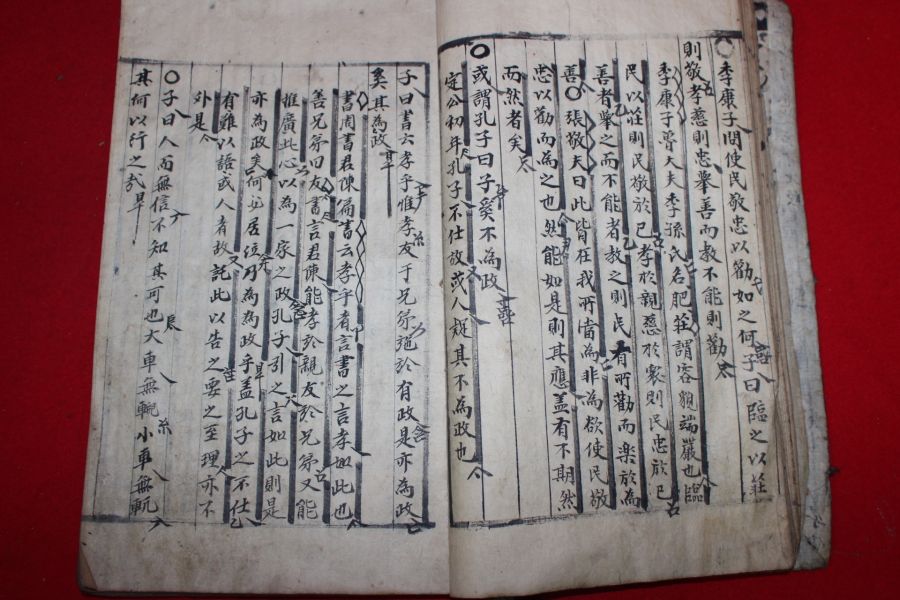 ○季康子問使民敬忠以勸如之何子曰臨之以莊
則敬孝慈則忠擧善而敎不能則勸
季康子魯大夫季孫氏名肥莊謂容貌端嚴也臨
民以莊則民敬於己孝於親慈於衆則民忠於己
善者擧之而不能者教之則民有所勸而樂於為
善○張敬夫曰此皆在我所當為非為欲使民敬
忠以勸而為之也然能如是則其應盖有不期然
而然者矣
○或謂孔子曰子奚不為政
定公初年孔子不仕故或人疑其不為政也
子曰書云孝乎惟孝友于兄弟施於有政是亦為政
奚其為政
書周書君陳篇書云孝乎者言書之言孝如此也
善兄弟曰友書言君陳能孝於親友於兄弟又能
推廣此心以為一家之政孔子引之言如此則是
亦為政矣何必居位乃為為政乎盖孔子之不仕
有難以語或人者故託此以告之要之至理亦不
外是
○子曰人而無信不知其可也大車無輗小車無軏
其何以行之哉